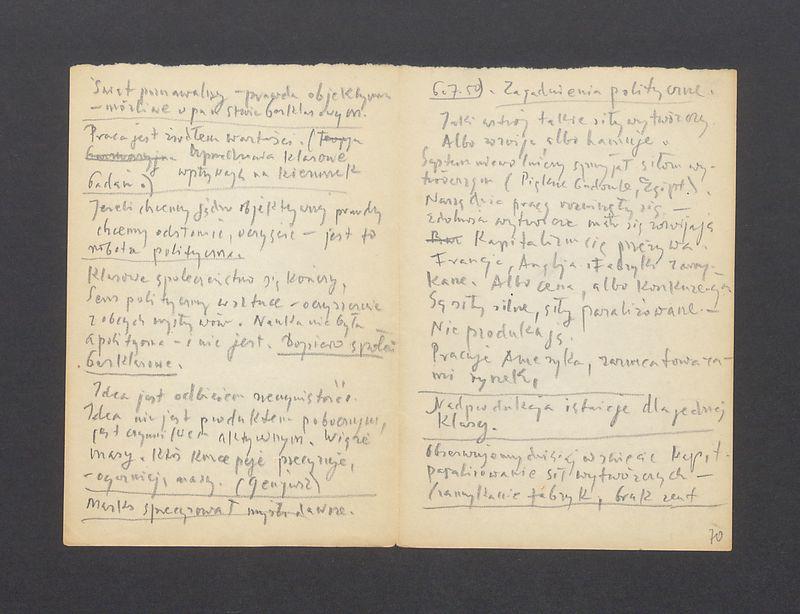 Świat poznawalny – prawda objektywna
– możliwe w państwie bezklasowym.
Praca jest źródłem wartości. (
Uprawnienia klasowe
badań wpływają na kierunek
Jeżeli chcemy jądro objektywnej prawdy
chcemy odsłonić, oczyścić – jest to
robota polityczna.
Klasowe społeczeństwo się kończy,
Sens polityczny w sztuce – oczyszczenie
z obcych wpływów. Nauka nie była
apolityczna – i nie jest. Dopiero społecz
bezklasowe.
Idea jest odbiciem rzeczywistości.
Idea nie jest produktem pobocznym,
jest czynnikiem aktywnym. Wiąże
masy. Ktoś precyzuje,
– ogarniają masy. (Genjusz)
Marks sprecyzował myśli dawne.
6.7.50. Zagadnienia polityczne.
Jaki ustrój takie siły wytwórczy.
Albo rozwija albo hamuje.
System niewolniczy sprzyjał siłom wy-
twórczym (Piękne budowle, Egipt).
Narzędzia pracy rozwinęły się. –
zdolności wytwórcze rozwijają
Kapitalizm się przeżywa.
Francja, Anglja. Fabryki zamy-
kane. Albo cena, albo konkurencja
Są siły silne, siły paraliżowane. –
Nie produkują.
Pracuje Ameryka, zarzuca towara-
mi rynek,
Nadprodukcja istnieje dla jednej
klasy.
Obserwujemy dzisiaj w świecie kapit.
paraliżowanie sił wytwórczych –
(zamykanie fabryk, brak
70